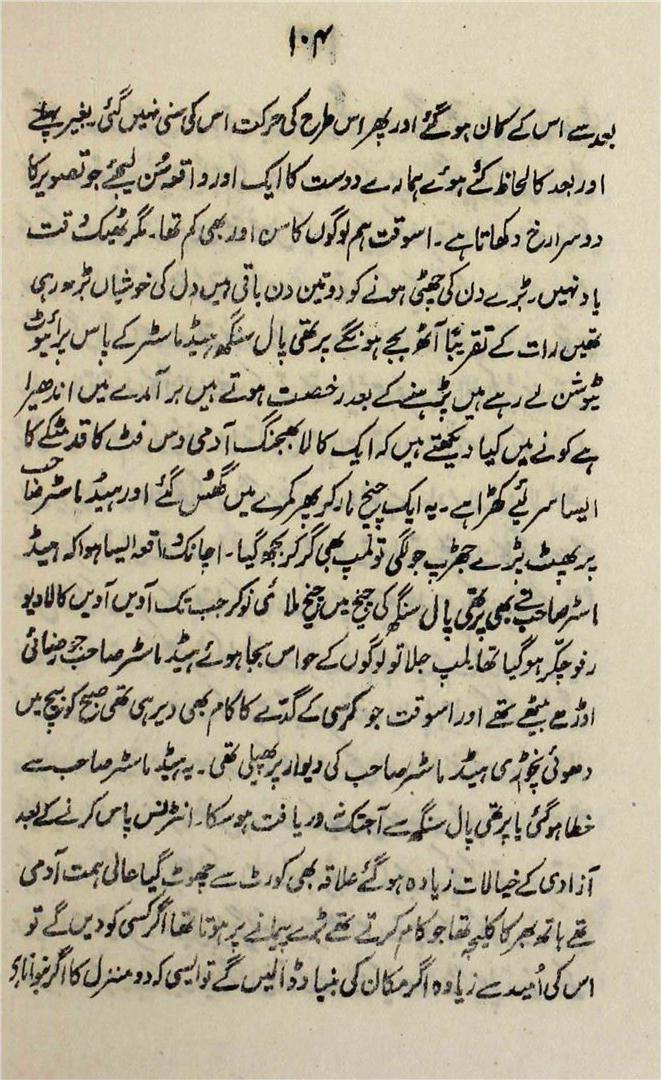 ۱۰۴
بعد سے اس کے کان ہو گئے اور پھر اس طرح کی حرکت اس کی سنی نہیں گئی۔ بغیر پہلے
اور بعد کا لحاظ کئے ہوئے ہمارے دوست کا ایک اور واقعہ سُن لیجئے جو تصویر کا
دوسرا رخ دکھاتا ہے۔ اسوقت ہم لوگوں کا سن اور بھی کم تھا۔ مگر ٹھیک وقت
یاد نہیں۔ بڑے دن کی چھٹی ہونے کو دو تین دن باقی ہیں دل کی خوشیاں بڑھ رہی
تھیں رات کے تقریباً آٹھ بجے ہونگے پرتھی پال سنگھ ہیڈ ماسٹر کے پاس پرائیوٹ
ٹیوشن لے رہے ہیں پڑہنے کے بعد رخصت ہوتے ہیں برآمدے میں اندھیرا
ہے کونے میں کیا دیکھتے ہیں کہ ایک کالا بھجنگ آدمی دس فٹ کا قد مٹکے کا
ایسا سر لئے کھڑا ہے۔ یہ ایک چیخ مار کر پھر کمرے میں گھُس گئے اور ہیڈ ماسٹر صاحب
پر پھٹ پڑے جھڑپ جو لگی تو لمپ بھی گر کر بجھ گیا۔ اچانک واقعہ ایسا ہوا کہ ہیڈ
ماسٹر صاحب نے بھی پرتھی پال سنگھ کی چیخ میں چیخ ملائی نوکر جب تک آویں آویں کالا دیو
رفو چکر ہو گیا تھا۔ لمپ جلا تو لوگوں کے حواس بجا ہوئے ہیڈ ماسٹر صاحب جو رضائی
اوڑھے بیٹھے تھے اور اسوقت جو کرسی کے گدّے کا کام بھی دیر ہی تھی صبح کو بیچ میں
دھوئی نچوڑی ہیڈ ماسٹر صاحب کی دیوار پر پھیلی تھی۔ یہ ہیڈ ماسٹر صاحب سے
خطا ہو گئی یا پرتھی پال سنگھ سے آجتک نہ دریافت ہو سکا۔ انٹرنس پاس کرنے کے بعد
آزادی کے خیالات زیادہ ہو گئے علاقہ بھی کورٹ سے چھوٹ گیا عالی ہمت آدمی
تھے ہاتھ بھر کا کلیجہ تھا جو کام کرتے تھے بڑے پیمانے پر ہوتا تھا اگر کسی کو دیں گے تو
اس کی اُمید سے زیادہ اگر مکان کی بنیاد ڈالیں گے تو ایسی کہ دو منزل کا اگر